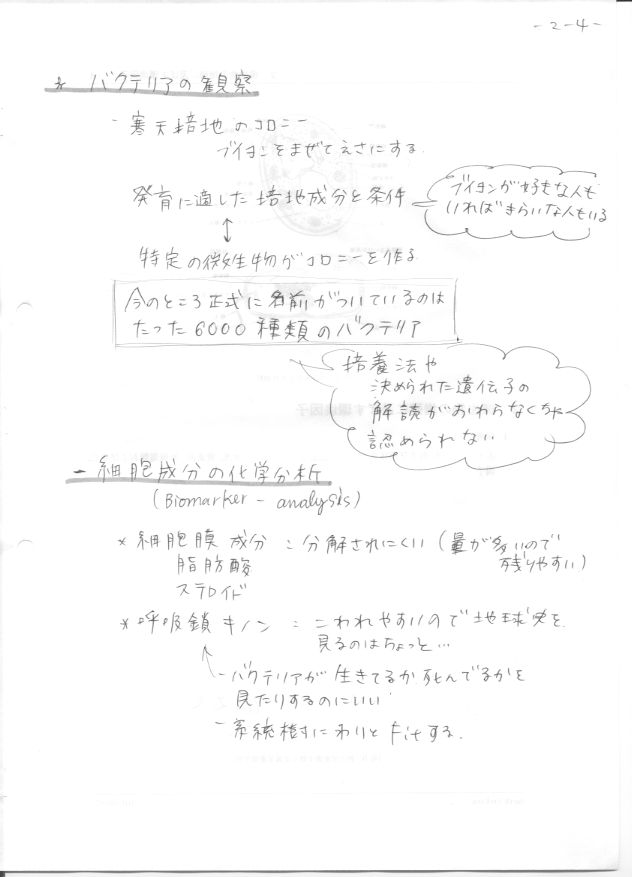 -2-4-
* バクテリアの観察
- 寒天培地のコロニー
ブイヨンをまぜてえさにする.
発育に適した培地成分と条件
ブイヨンが好きな人も
いればきらいな人もいる
↕
特定の微生物がコロニーを作る
今のところ正式に名前がついているのは
たった6000種類のバクテリア
培養法や
決められた遺伝子の
解読がおわらなくちゃ
認められない
- 細胞成分の化学分析
(Biomarker - analysis)
* 細胞膜成分 : 分解されにくい (量が多いので
残りやすい)
脂肪酸
ステロイド
* 呼吸鎖キノン : こわれやすいので地球史を
見るのはちょっと…
- バクテリアが生きてるか死んでるかを
見たりするのにいい
- 系統樹にわりとFitする.